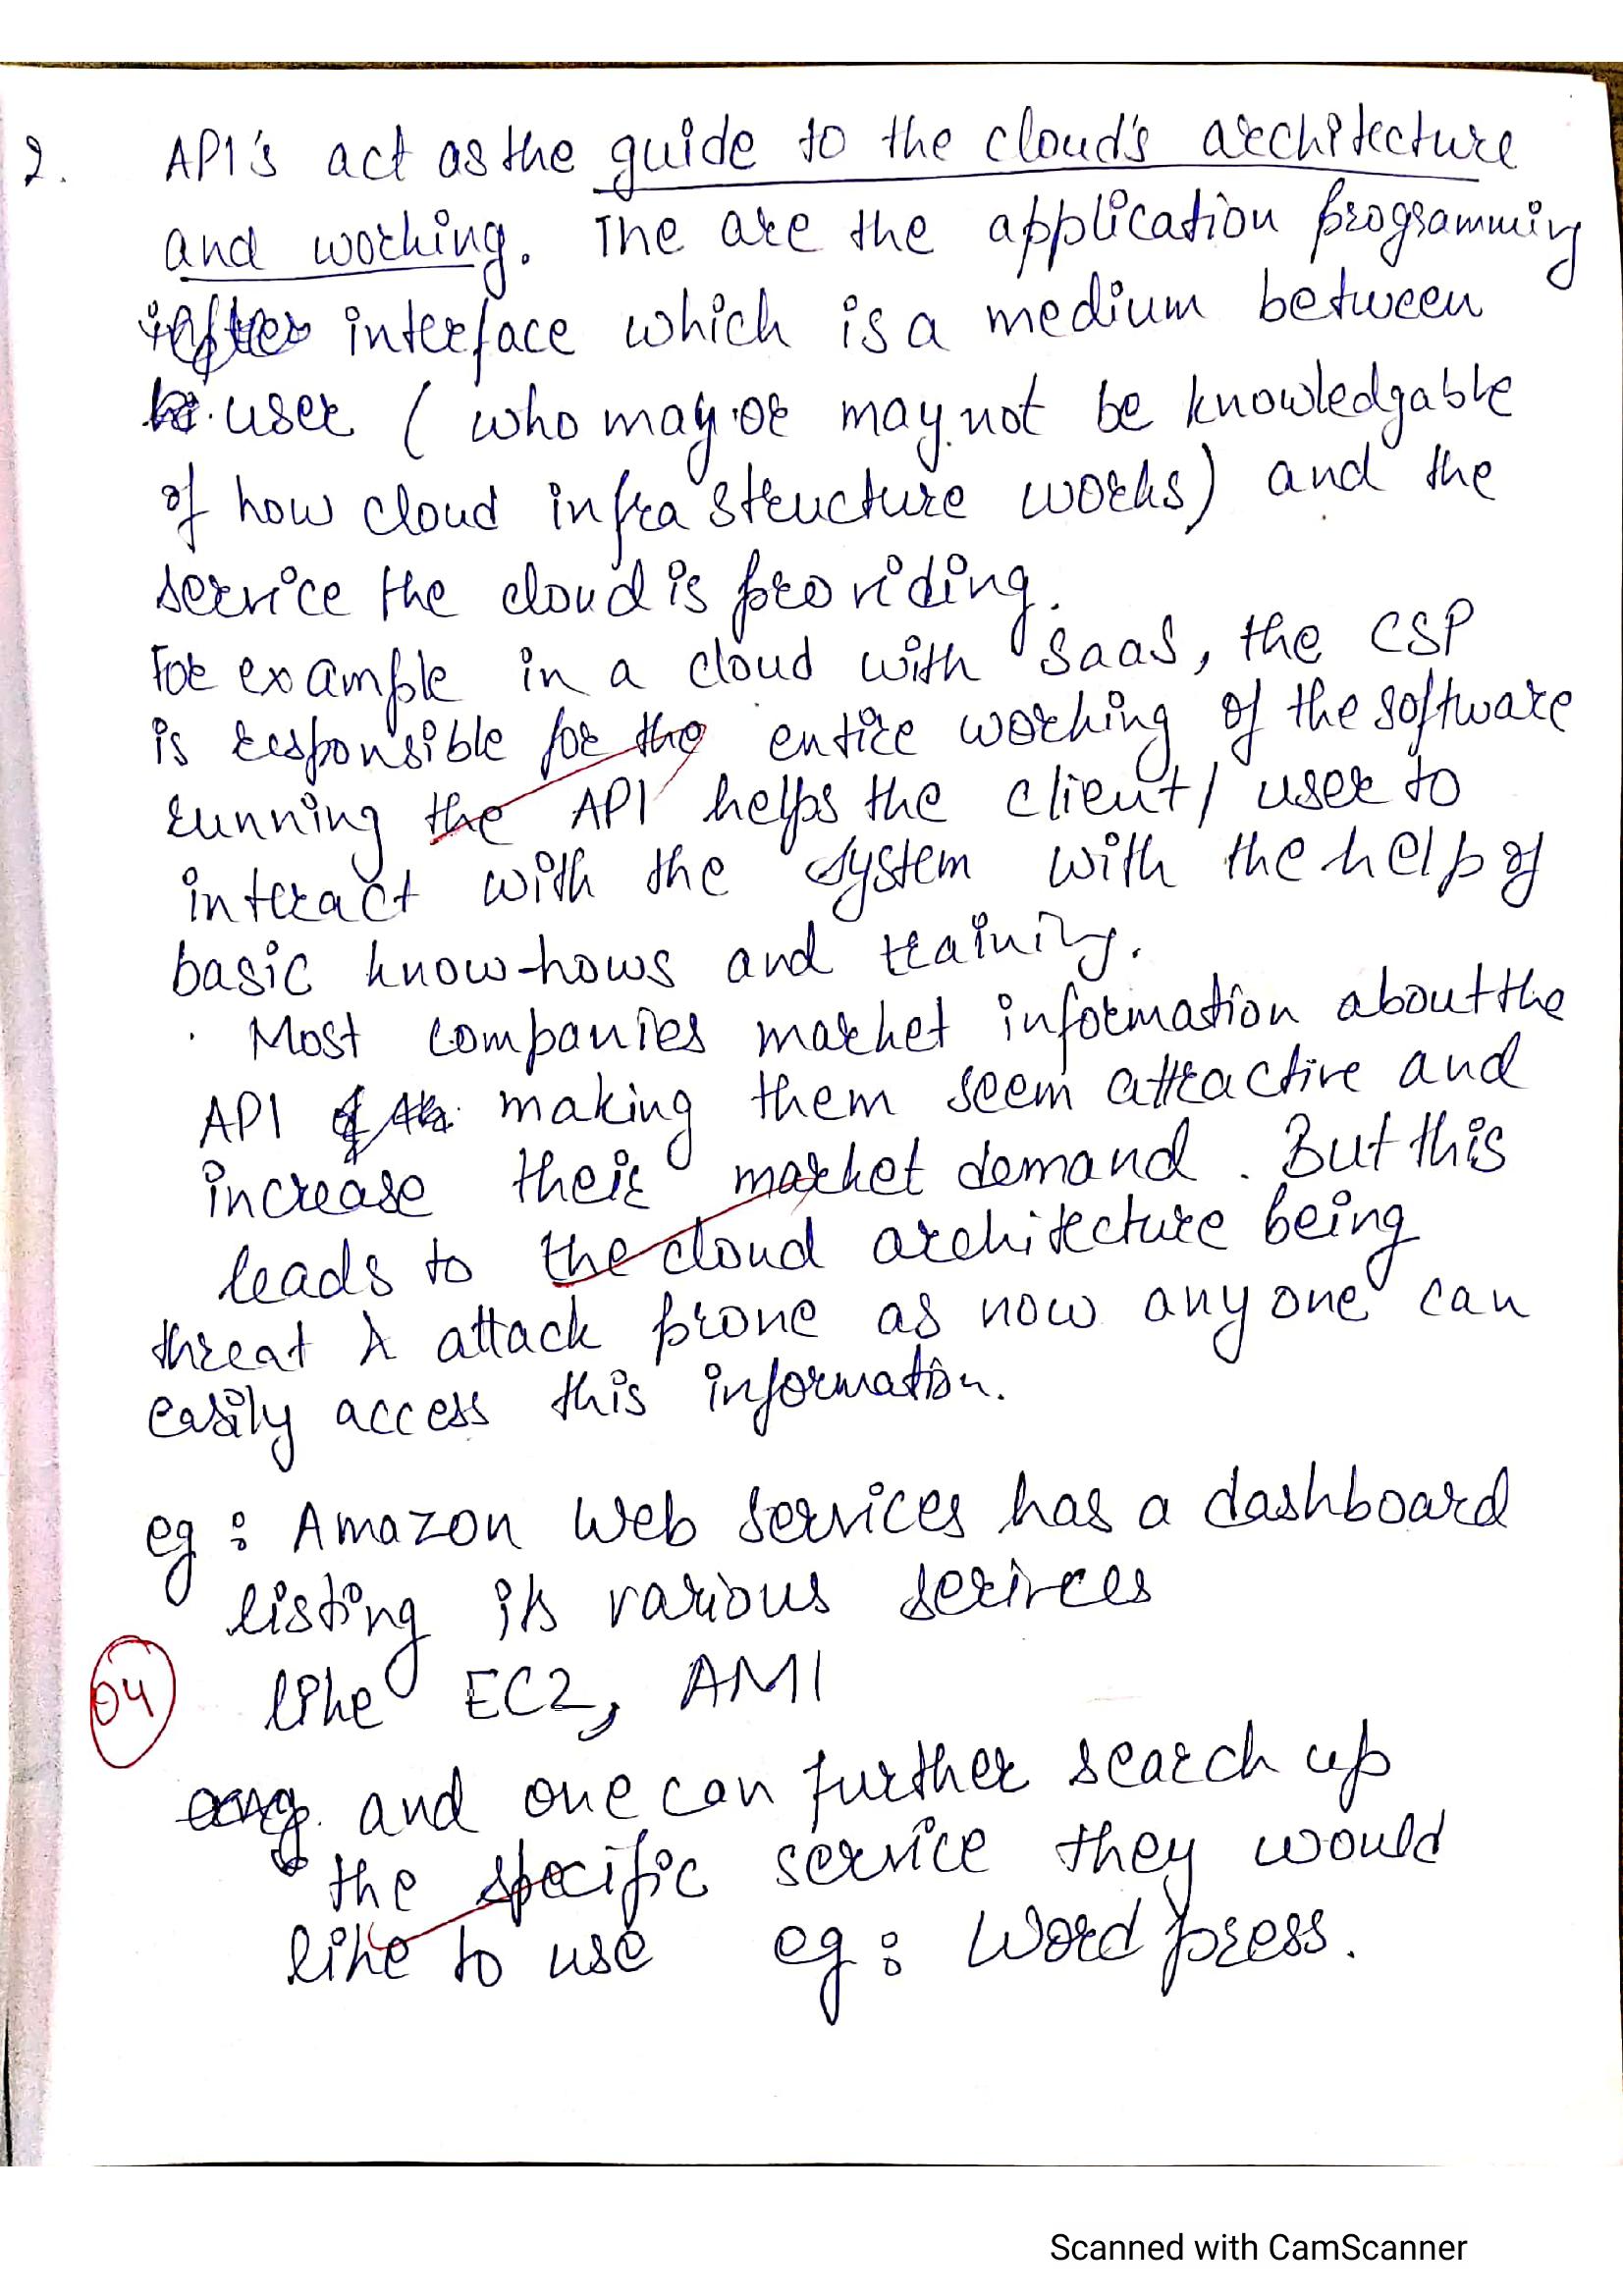 2. API's act as the guide to the cloud's architecture
and working. The are the application programming
interface which is a medium between
user ( who may or may not be knowledgable
of how cloud infrastructure works) and the
service the cloud is providing.
For example in a cloud with SaaS, the CSP
is responsible for the entire working of the software
running the API helps the client/ user to
interact with the system with the help of
basic know-hows and training.
. Most companies market information about the
API making them seem attractive and
increase their market demand. But this
leads to the cloud architecture being
threat & attack prone as now anyone can
easily access this information.
eg : Amazon Web Services has a dashboard
listing its various serivces
04 like EC2, AMI
and one can further search up
the specific service they would
like to use eg : Wordpress.
Scanned with CamScanner